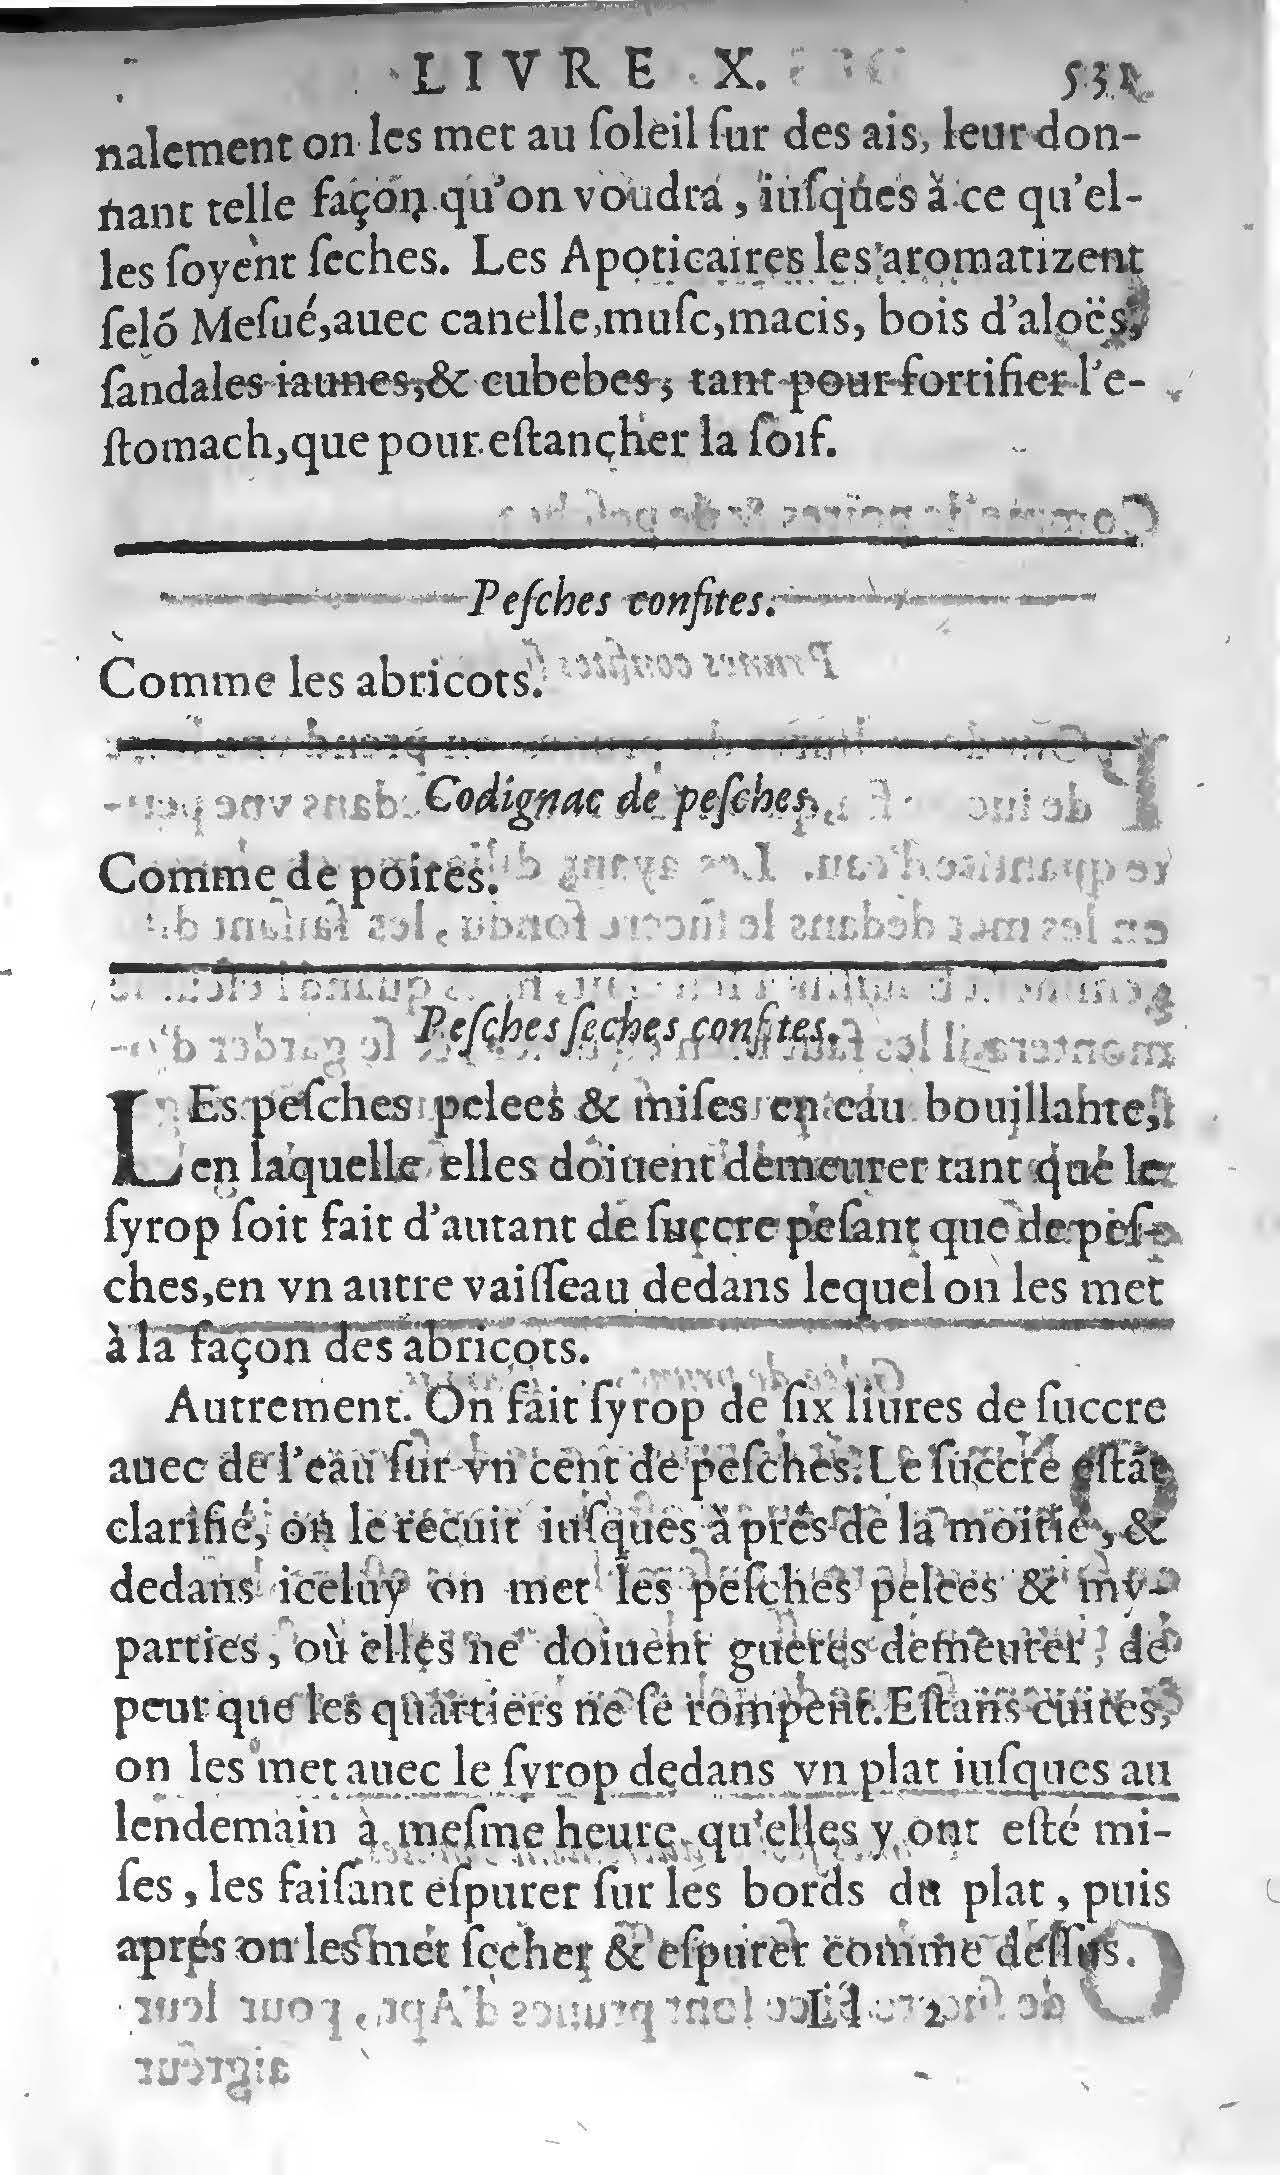 LIVRE X. 531
nalement on les met au ſoleil ſur des ais, leur don-
nant telle façon qu'on voudra, iuſques à ce qu'el-
les ſoyent ſeches. Les Apoticaires les aromatizent
ſelõ Meſué, auec canelle, muſc, macis, bois d'aloës,
ſandales iaunes, & cubebes, tant pour fortifier l'e-
ſtomach, que pour eſtancher la ſoif.
Peſches confites.
Comme les abricots.
Codignac de peſches.
Comme de poires.
Peſches ſeches confites.
LEs peſches pelees & miſes en eau bouillante,
en laquelle elles doiuent demeurer tant que le
ſyrop ſoit fait d'autant de ſuccre peſant que de peſ-
ches, en vn autre vaiſſeau dedans lequel on les met
à la façon des abricots.
Autrement. On fait ſyrop de ſix liures de ſuccre
auec de l'eau ſur vn cent de peſches. Le ſuccre eſtãt
clarifié, on le recuit iuſques à prés de la moitié, &
dedans iceluy on met les peſches pelees & my-
parties, où elles ne doiuent gueres demeurer, de
peur que les quartiers ne ſe rompent. Eſtans cuites,
on les met auec le ſyrop dedans vn plat iuſques au
lendemain à meſme heure qu'elles y ont eſté mi-
ſes, les faiſant eſpurer ſur les bords du plat, puis
aprés on les met ſecher & eſpurer comme deſſus.
Ll 2